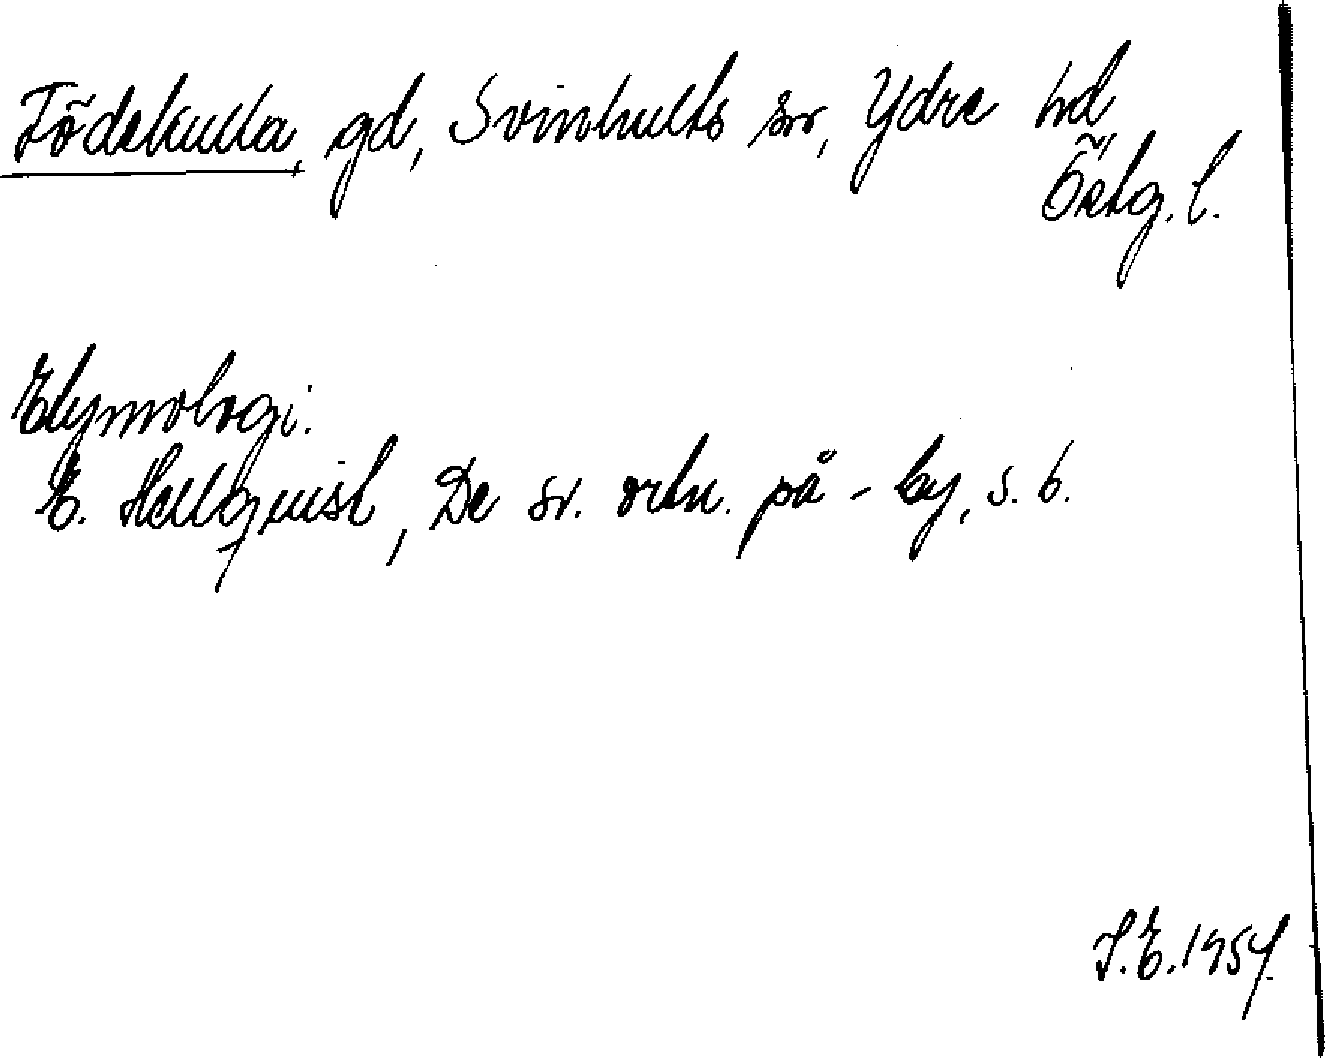 Födekulla, gd, Svinhults sn, Ydre hd
Östg. l.
Etymologi.
E. Hellquist, De sv. ortn. på -by, s. 6.
S.E. 1954.